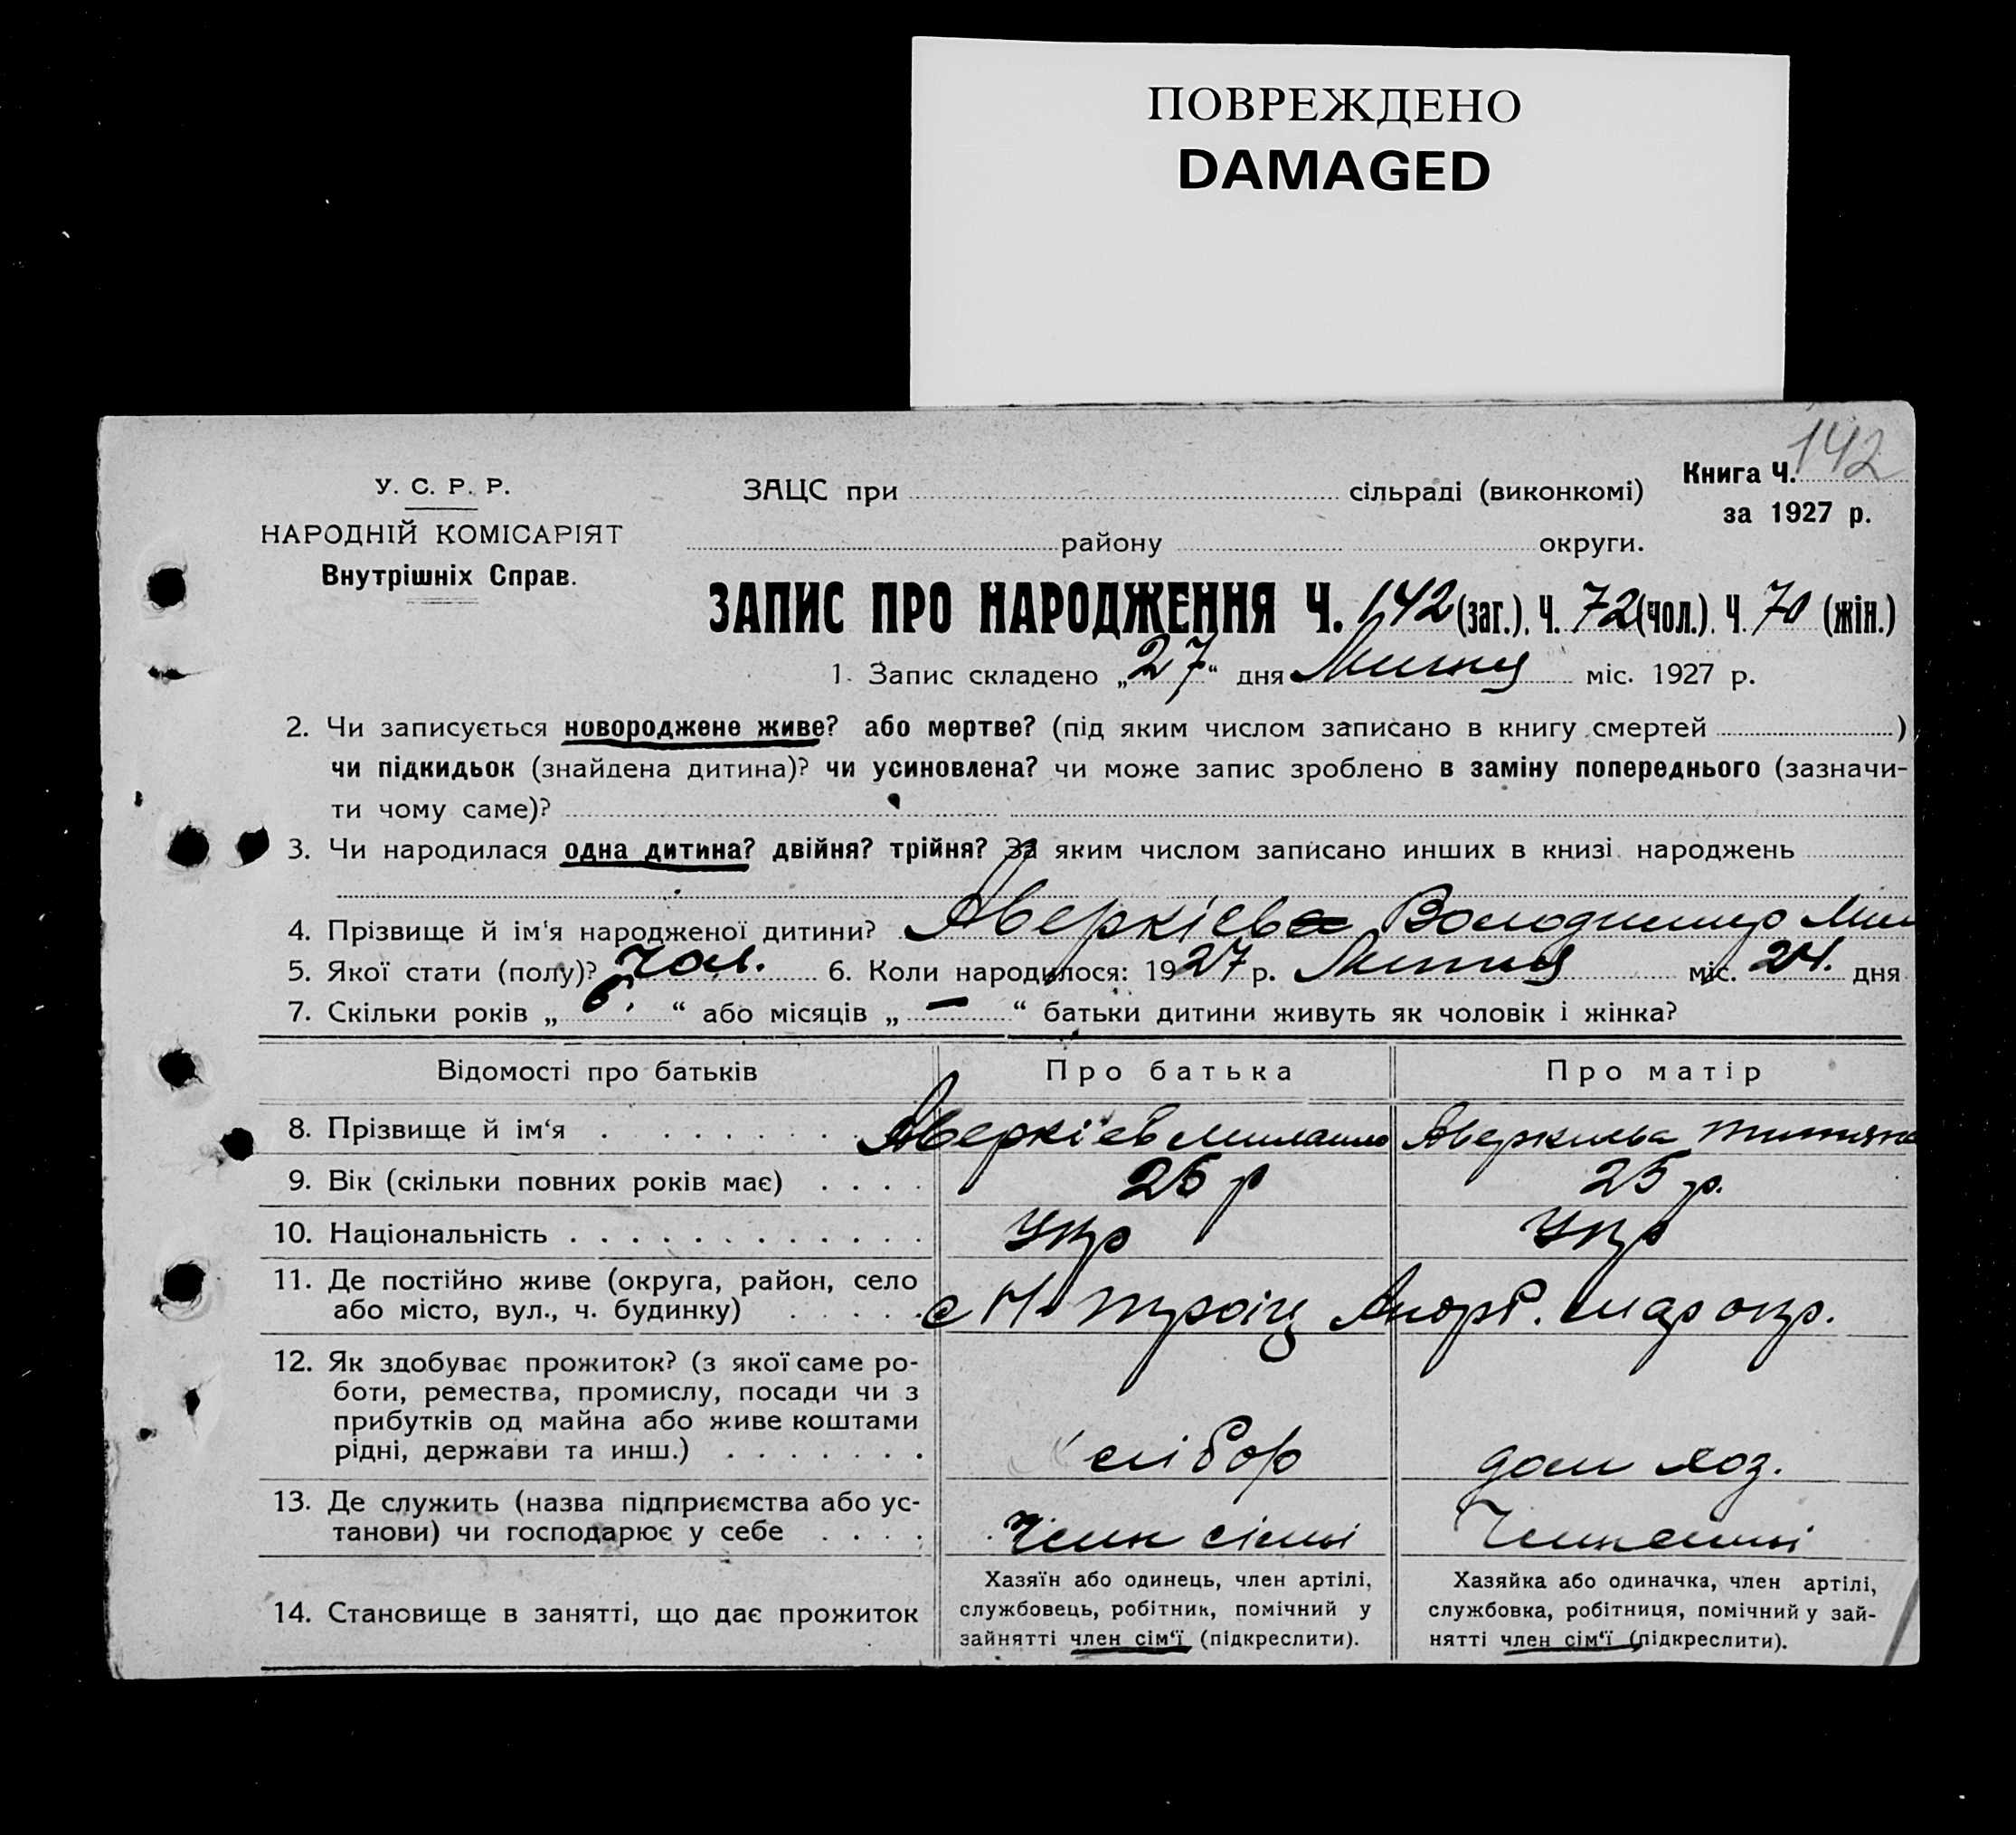 ПОВРЕЖДЕНО
DAMAGED
142
У. С. Р. Р.
НАРОДНІЙ КОМІСАРІЯТ
Внутрішніх Справ.
ЗАЦС при сільраді (виконкомі)
Книга Ч.
за 1927 р.
району округи.
ЗАПИС ПРО НАРОДЖЕННЯ Ч. 142 (заг.). Ч. 72 (чол.). Ч. 70 (жін.)
1. Запис складено „27“ дня Липня міс. 1927 р.
2. Чи записується новороджене живе? або мертве? (під яким числом записано в книгу смертей )
чи підкидьок (знайдена дитина)? чи усиновлена? чи може запис зроблено в заміну попереднього (зазначи-
ти чому саме)?
3. Чи народилася одна дитина? двійня? трійня? За яким числом записано инших в книзі народжень
4. Прізвище й ім'я народженої дитини? Аверкієв Володимир
5. Якої стати (полу)? Чол. 6. Коли народилося: 1927 р. Липня міс. 24. дня
7. Скільки років „6.“ або місяців „—“ батьки дитини живуть як чоловік і жінка?
Відомості про батьків Про батька Про матір
8. Прізвище й ім‘я Аверкієв Михайло
9. Вік (скільки повних років має) 25 р. 
10. Національність Укр Укр
11. Де постійно живе (округа, район, село
або місто, вул., ч. будинку) с Н. Троіц мар окр.
12. Як здобуває прожиток? (з якої саме ро-
боти, ремества, промислу, посади чи з
прибутків од майна або живе коштами
рідні, держави та инш.) хлібор дом хоз.
13. Де служить (назва підприємства або ус-
танови) чи господарює у себе Член сімї Член сімї
14. Становище в занятті, що дає прожиток
Хазяїн або одинець, член артілі,
службовець, робітник, помічний у
зайнятті член сім‘ї (підкреслити).
Хазяйка або одиначка, член артілі,
службовка, робітниця, помічний у зай-
нятті член сім‘ї (підкреслити).